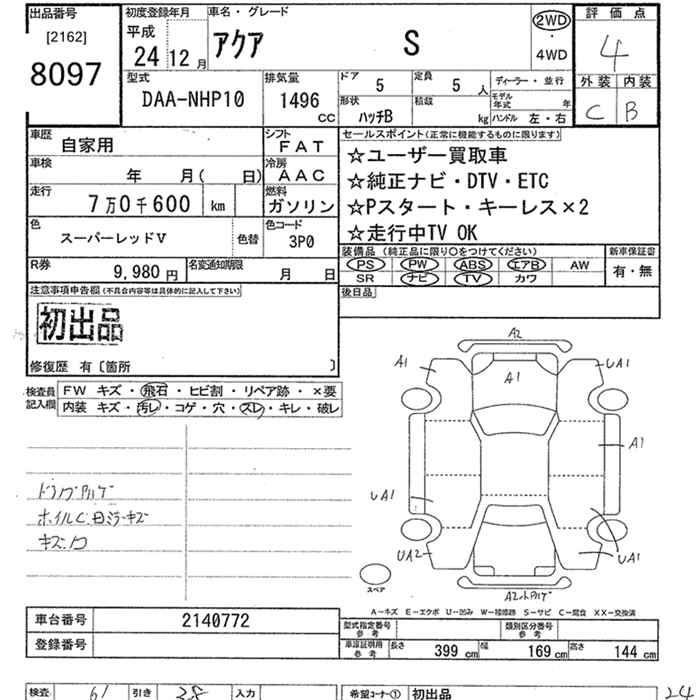 出品番号
[2162]
8097
初度登録年月
平成
24 12 月
車名・グレード
アクア S
2WD
・
4WD
評価点
4
外装 内装
C B
型式
DAA-NHP10
排気量
1496 CC
ドア 5
定員 5 人
ディーラー・並行
形状 ハッチB
積載 kg
モデル年式 年
ハンドル 左・右
車歴 自家用
シフト FAT
車検 年 月( 日)
冷房 AAC
走行 7万0千600 km
燃料 ガソリン
色 スーパーレッドV
色替
色コード 3P0
R券 9,980 円
名変通知期限 月 日
セールスポイント(正常に機能するものに限ります)
☆ユーザー買取車
☆純正ナビ・DTV・ETC
☆Pスタート・キーレス×2
☆走行中TV OK
装備品(純正品に限り○をつけてください)
PS PW ABS エアB AW
SR ナビ TV カワ
新車保証書
有・無
後日品
注意事項申告欄(不具合内容等は具体的に記入して下さい)
初出品
修復歴 有〔箇所 〕
検査員記入欄
FW キズ・飛石・ヒビ割・リペア跡・×要
内装 キズ・汚レ・コゲ・穴・スレ・キレ・破レ
ホイルC
キズ
A2
A1
A1
UA1
A1
UA1
UA2
UA1
A2
スペア
A-キズ E-エクボ U-凹み W-補修跡 S-サビ C-腐食 XX-交換済
車台番号 2140772
登録番号
型式指定番号 参考
類別区分番号 参考
車庫証明用 参考
長さ 399 cm
幅 169 cm
高さ 144 cm
検査 61
引き 28
入力
希望コーナー① 初出品
24